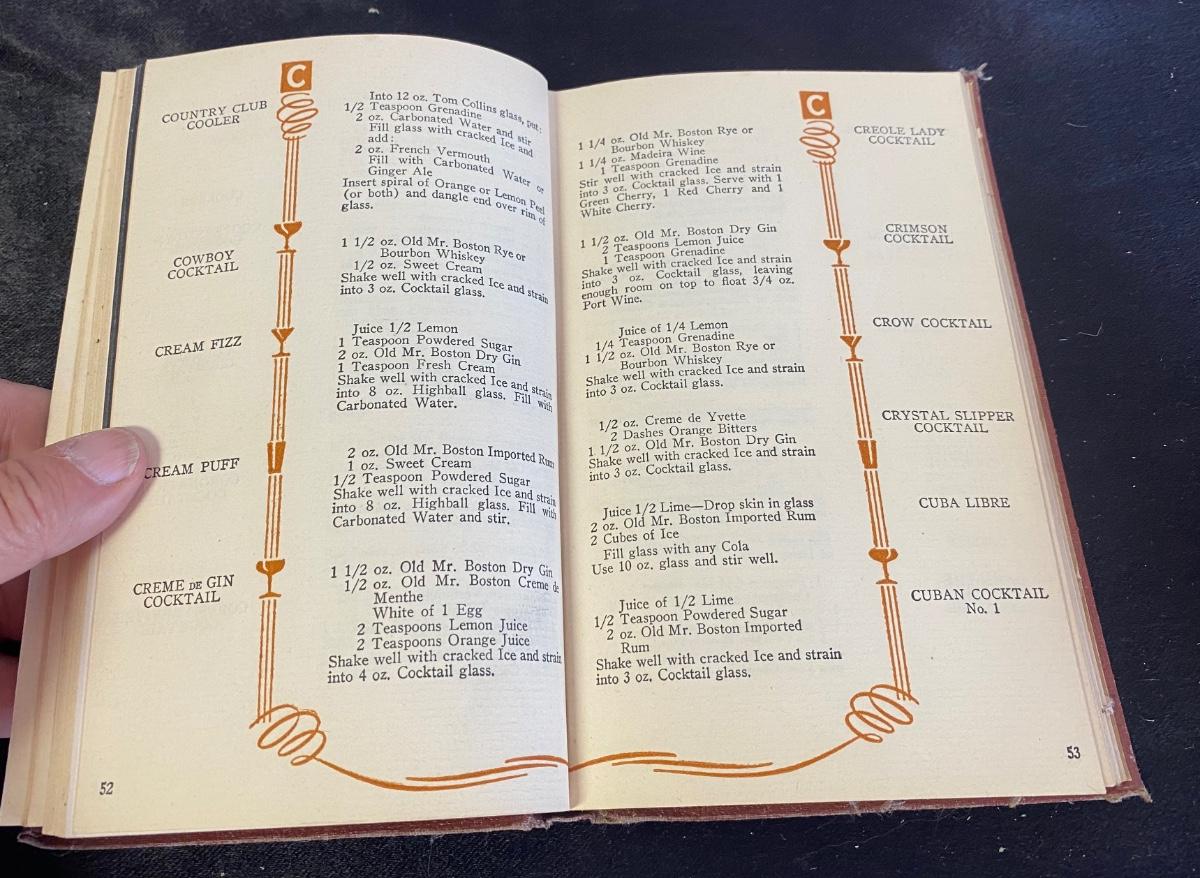 C
COUNTRY CLUB
COOLER
Into 12 oz. Tom Collins glass, put:
1/2 Teaspoon Grenadine
2 oz. Carbonated Water and stir
Fill glass with cracked Ice and
add:
2 oz. French Vermouth
Fill with Carbonated Water or
Ginger Ale
Insert spiral of Orange or Lemon Peel
(or both) and dangle end over rim of
glass.
COWBOY
COCKTAIL
1 1/2 oz. Old Mr. Boston Rye or
Bourbon Whiskey
1/2 oz. Sweet Cream
Shake well with cracked Ice and strain
into 3 oz. Cocktail glass.
CREAM FIZZ
Juice 1/2 Lemon
1 Teaspoon Powdered Sugar
2 oz. Old Mr. Boston Dry Gin
1 Teaspoon Fresh Cream
Shake well with cracked Ice and strain
into 8 oz. Highball glass. Fill with
Carbonated Water.
CREAM PUFF
2 oz. Old Mr. Boston Imported Rum
1 oz. Sweet Cream
1/2 Teaspoon Powdered Sugar
Shake well with cracked Ice and strain
into 8 oz. Highball glass. Fill with
Carbonated Water and stir.
CREME DE GIN
COCKTAIL
1 1/2 oz. Old Mr. Boston Dry Gin
1/2 oz. Old Mr. Boston Creme de
Menthe
White of 1 Egg
2 Teaspoons Lemon Juice
2 Teaspoons Orange Juice
Shake well with cracked Ice and strain
into 4 oz. Cocktail glass.
52
C
CREOLE LADY
COCKTAIL
1 1/4 oz. Old Mr. Boston Rye or
Bourbon Whiskey
1 1/4 oz. Madeira Wine
1 Teaspoon Grenadine
Stir well with cracked Ice and strain
into 3 oz. Cocktail glass. Serve with 1
Green Cherry, 1 Red Cherry and 1
White Cherry.
CRIMSON
COCKTAIL
1 1/2 oz. Old Mr. Boston Dry Gin
2 Teaspoons Lemon Juice
1 Teaspoon Grenadine
Shake well with cracked Ice and strain
into 3 oz. Cocktail glass, leaving
enough room on top to float 3/4 oz.
Port Wine.
CROW COCKTAIL
Juice of 1/4 Lemon
1/4 Teaspoon Grenadine
1 1/2 oz. Old Mr. Boston Rye or
Bourbon Whiskey
Shake well with cracked Ice and strain
into 3 oz. Cocktail glass.
CRYSTAL SLIPPER
COCKTAIL
1/2 oz. Creme de Yvette
2 Dashes Orange Bitters
1 1/2 oz. Old Mr. Boston Dry Gin
Shake well with cracked Ice and strain
into 3 oz. Cocktail glass.
CUBA LIBRE
Juice 1/2 Lime—Drop skin in glass
2 oz. Old Mr. Boston Imported Rum
2 Cubes of Ice
Fill glass with any Cola
Use 10 oz. glass and stir well.
CUBAN COCKTAIL
No. 1
Juice of 1/2 Lime
1/2 Teaspoon Powdered Sugar
2 oz. Old Mr. Boston Imported
Rum
Shake well with cracked Ice and strain
into 3 oz. Cocktail glass.
53